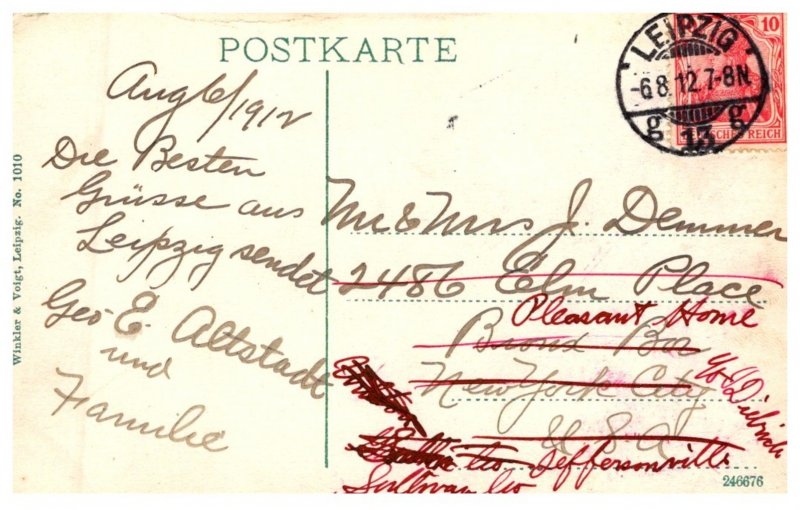 POSTKARTE
LEIPZIG
-6.8.12.7-8N.
g 13 g
10
DEUTSCHES REICH
Aug 6/1912
Die Besten
Grüsse aus
Leipzig sendet
Geo E. Altstadt
und
Familie
Mr & Mrs J. Demmer
2486 Elm Place
Pleasant Home
Bronx Bor
c/o Diebrich
New York City
U S A
Co Jeffersonville
Sullivan Co
Winkler & Voigt, Leipzig. No. 1010
246676